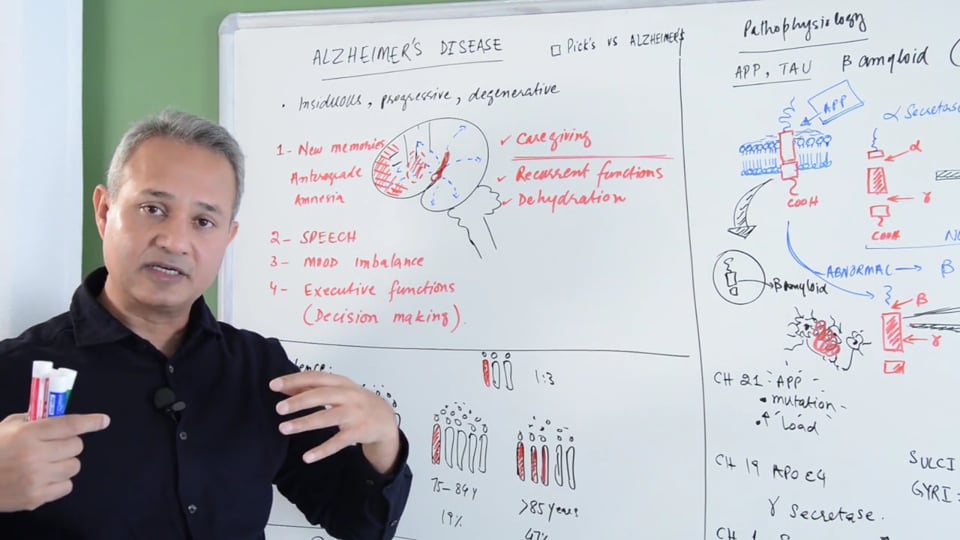 ALZHEIMER'S DISEASE
□ Pick's vs ALZHEIMER'S
• Insiduous, progressive, degenerative
1 - New memories
Anterograde
Amnesia
2 - SPEECH
3 - MOOD imbalance
4 - Executive functions
(Decision making).
✓ Caregiving
✓ Recurrent functions
✓ Dehydration
1:3
75-84 y
19%
>85 years
47%
Pathophysiology
APP, TAU
β amyloid
APP
α Secretase
α
γ
COOH
COOH
ABNORMAL → β
β amyloid
β
γ
CH 21 APP
• mutation
• ↑ Load
CH 19 APO E4
γ Secretase.
CH 1
SULCI
GYRI